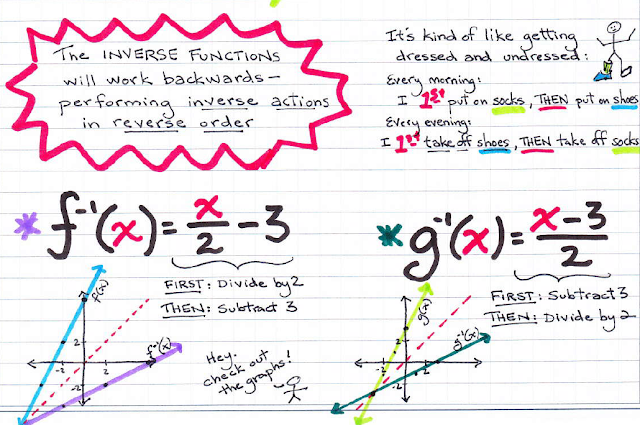 The INVERSE FUNCTIONS
will work backwards—
performing inverse actions
in reverse order
It's kind of like getting
dressed and undressed:
Every morning:
I 1st put on socks, THEN put on shoes
Every evening:
I 1st take off shoes, THEN take off socks
* f⁻¹(x) = x/2 − 3
FIRST: Divide by 2
THEN: Subtract 3
f(x)
f⁻¹(x)
-2
2
2
-2
Hey.
check out
the graphs!
* g⁻¹(x) = (x−3)/2
FIRST: Subtract 3
THEN: Divide by 2
g(x)
g⁻¹(x)
-2
2
2
-2